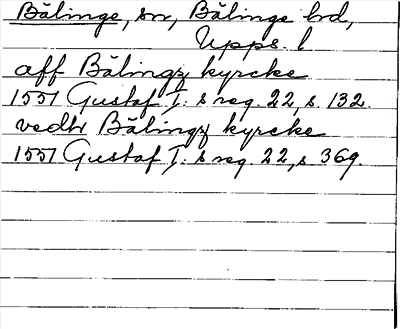 Bälinge, sn, Bälinge hd,
Upps. l
aff Bälingz kyrcke
1551 Gustaf I: s reg. 22, s. 132.
vedh Bälingz kyrcke
1551 Gustaf I: s reg. 22, s 369.